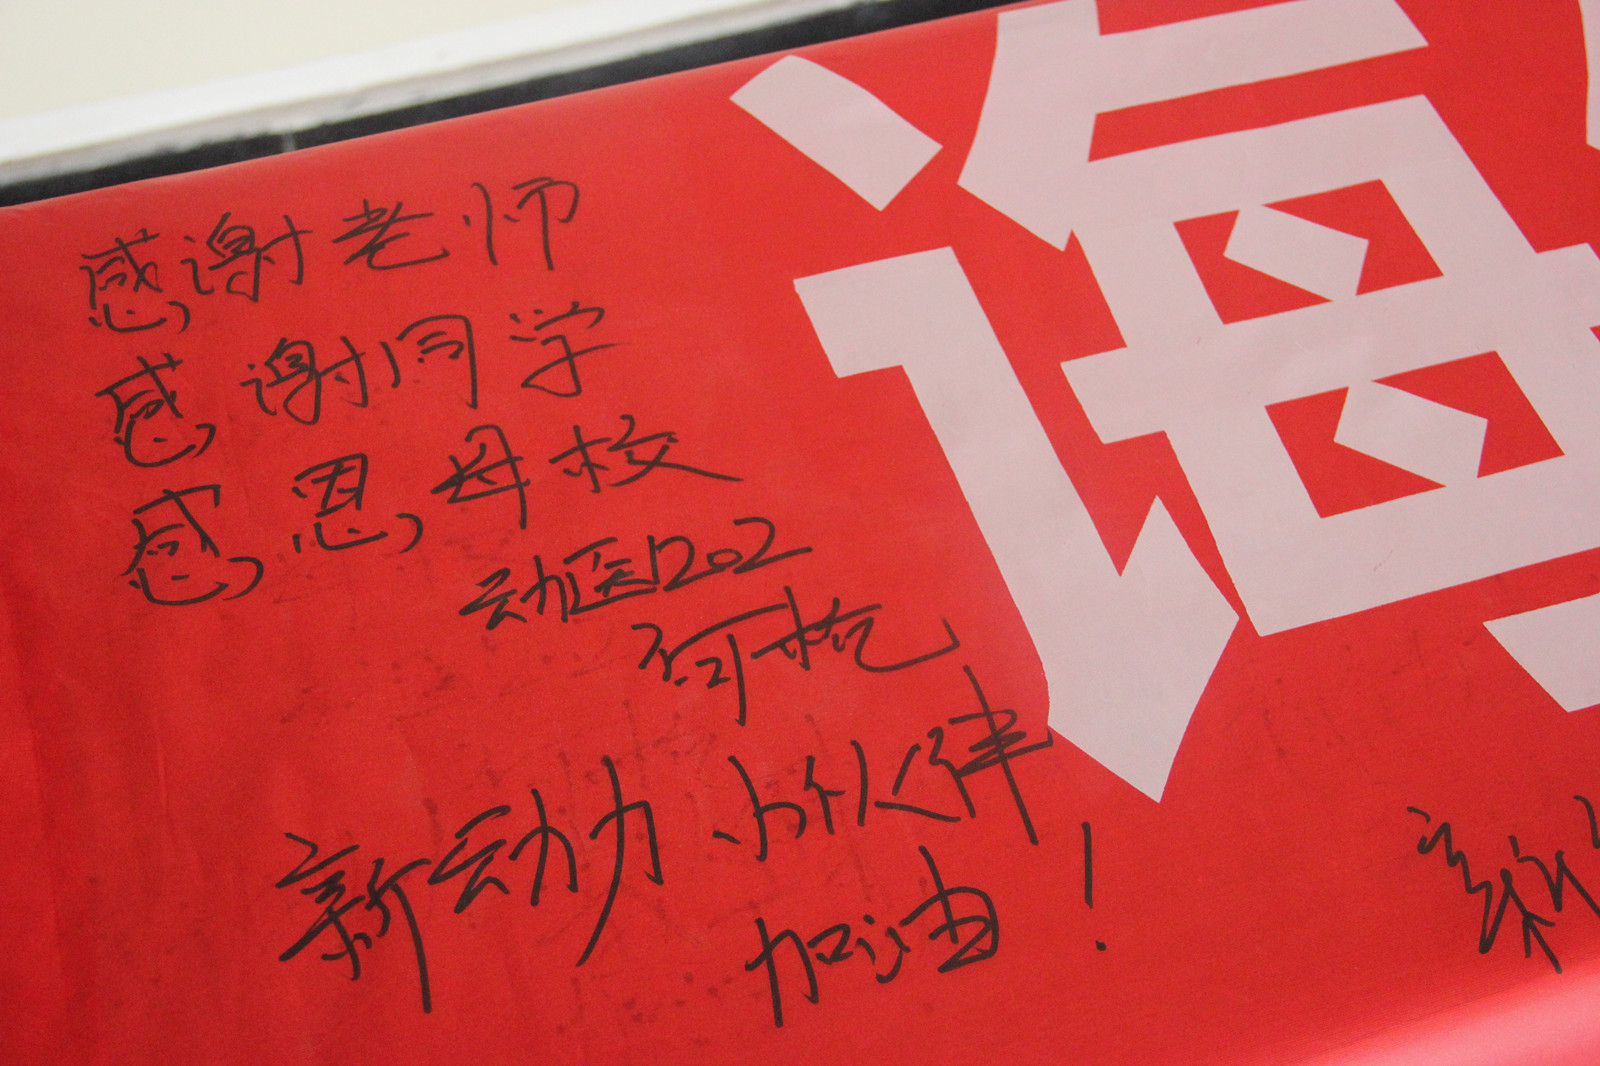 感谢老师
感谢同学
感恩母校
动医1202
新动力小伙伴
加油！
海
新